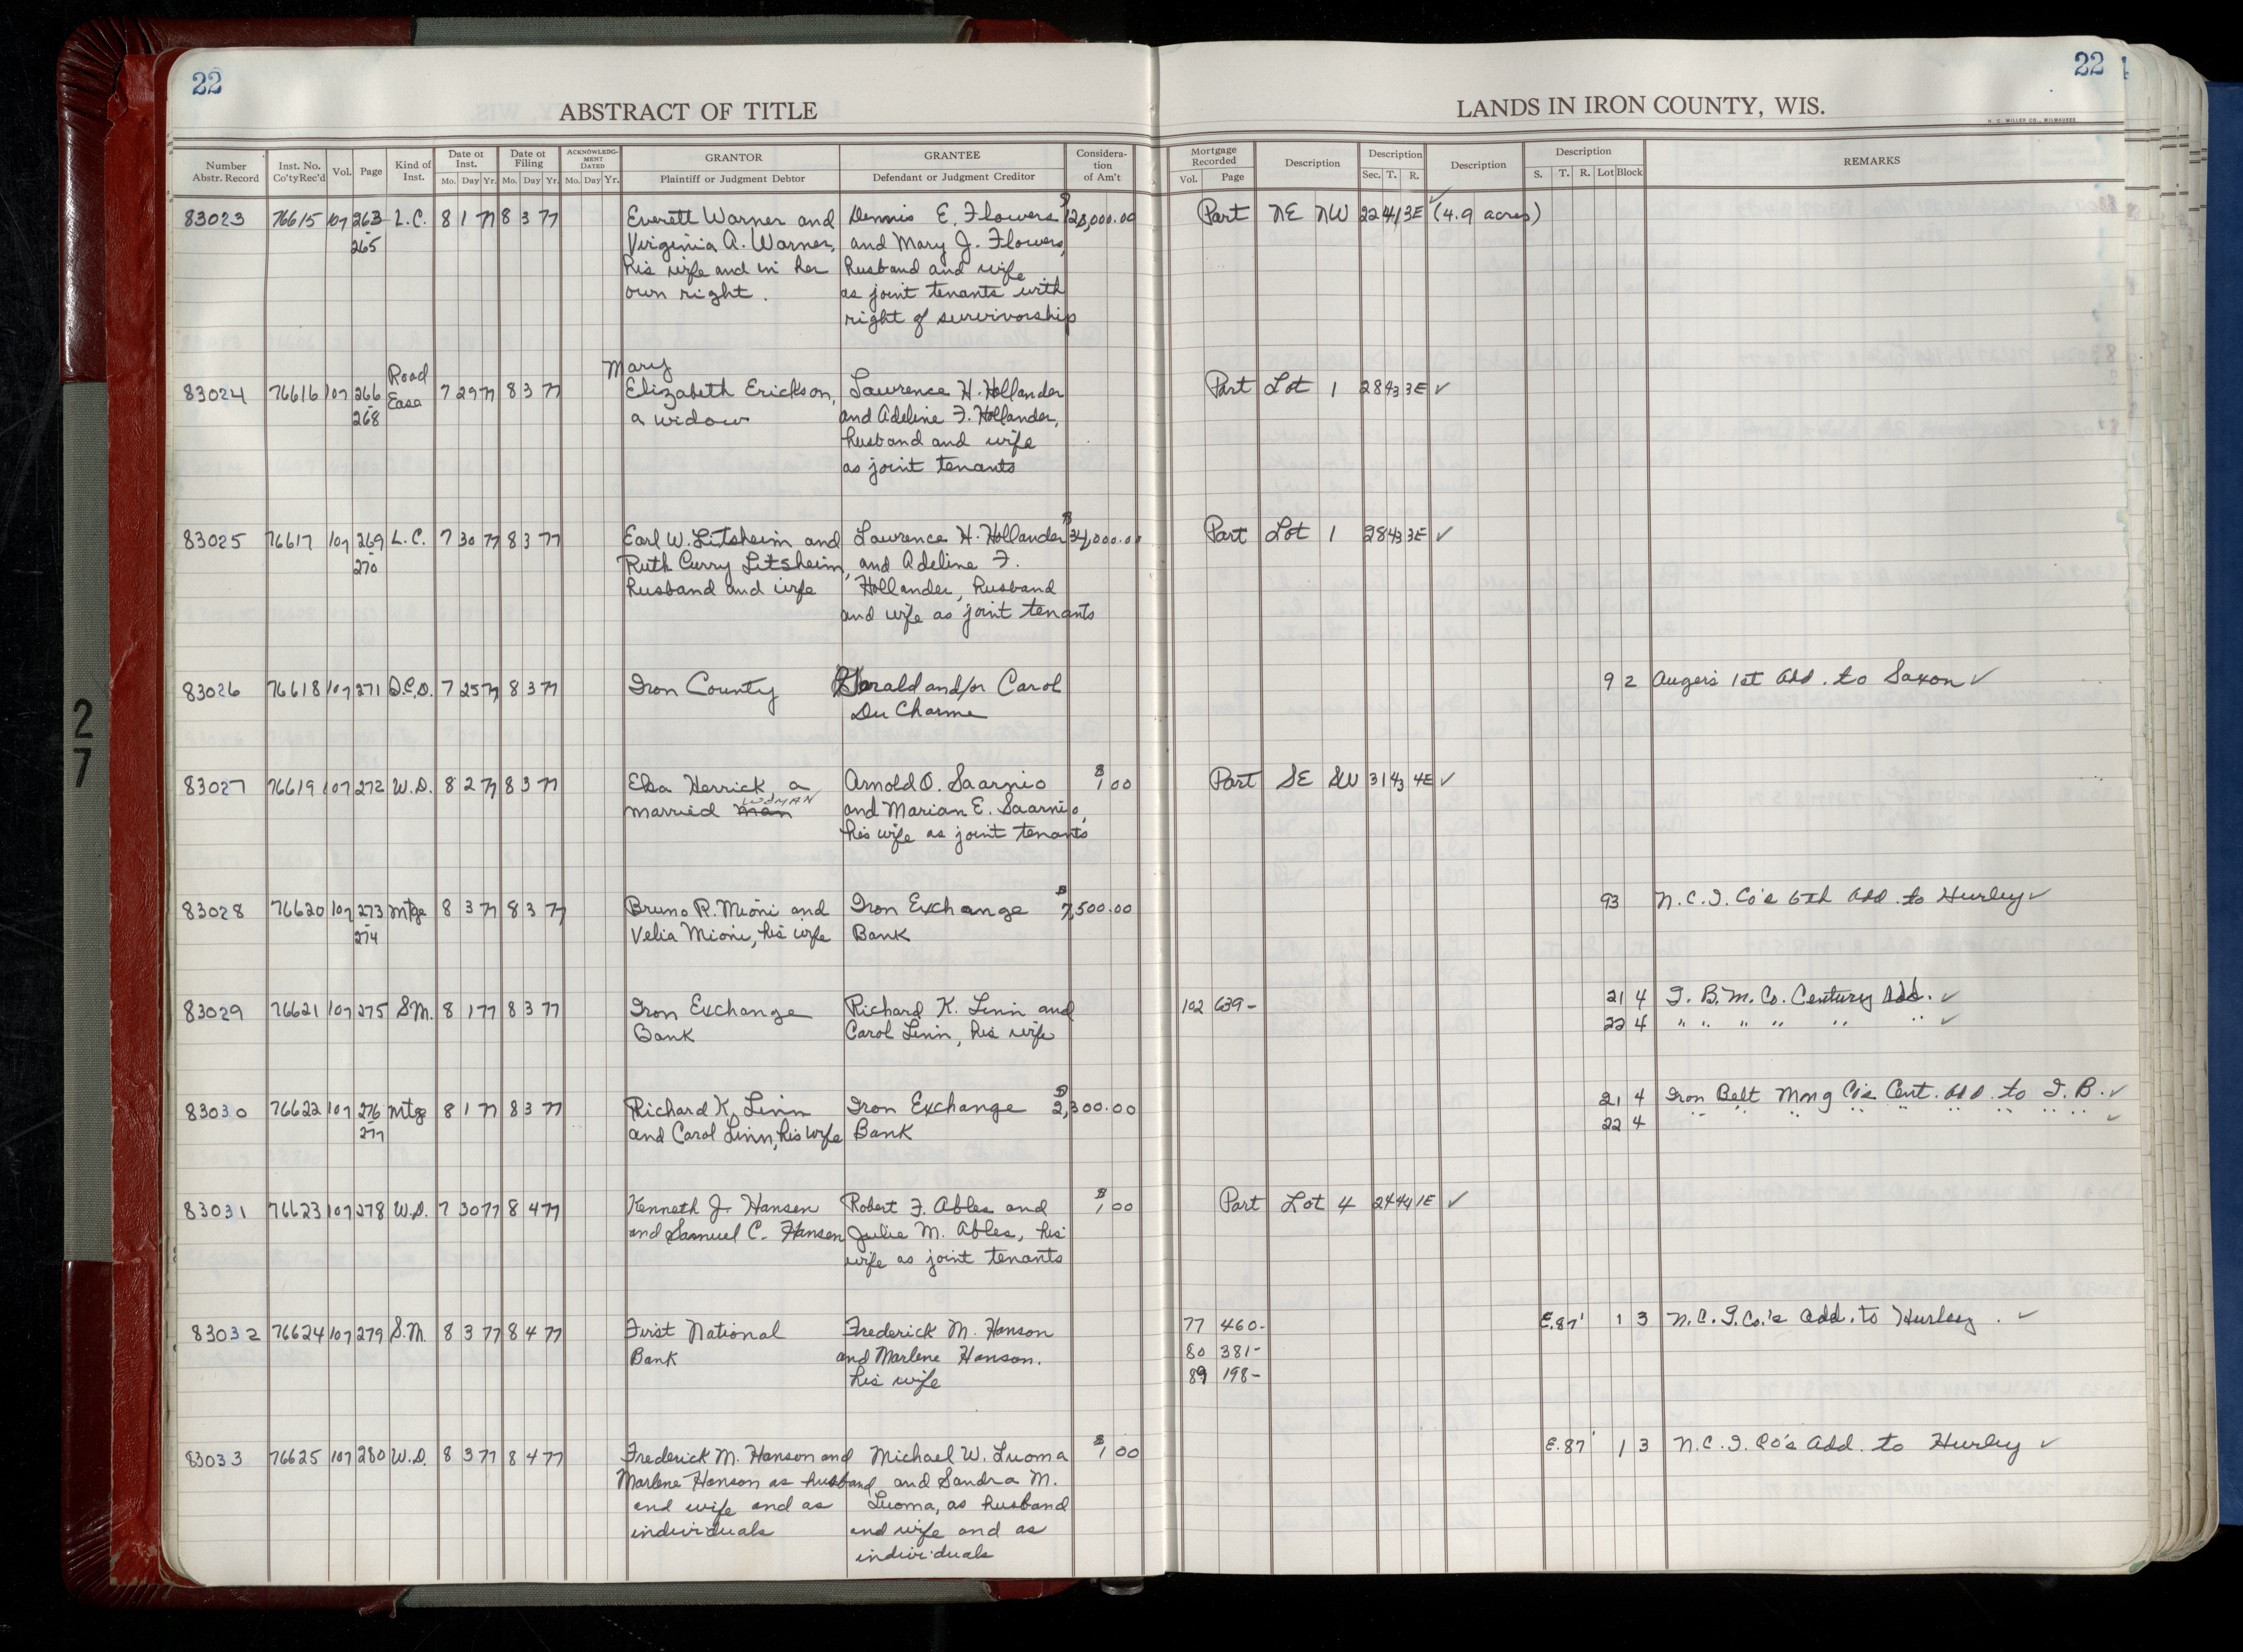 22
22
ABSTRACT OF TITLE
LANDS IN IRON COUNTY, WIS.
H. C. MILLER CO., MILWAUKEE
Number Abstr. Record | Inst. No. Co'ty Rec'd | Vol. | Page | Kind of Inst. | Date of Inst. Mo. Day Yr. | Date of Filing Mo. Day Yr. | ACKNOWLEDGMENT DATED Mo. Day Yr. | GRANTOR Plaintiff or Judgment Debtor | GRANTEE Defendant or Judgment Creditor | Consideration of Am't | Mortgage Recorded Vol. Page | Description | Description Sec. T. R. | Description | Description S. T. R. Lot Block | REMARKS
83023 76615 107 263 L.C. 8 1 77 8 3 77 Everett Warner and Dennis E. Flowers $ 28,000.00 Part NE NW 22 41 3E ✓ (4.9 acres)
-265 Virginia A. Warner, and Mary J. Flowers,
his wife and in her husband and wife
own right. as joint tenants with
right of survivorship
Road Mary
83024 76616 107 266 Ease 7 29 77 8 3 77 Elizabeth Erickson, Lawrence H. Hollander Part Lot 1 28 43 3E ✓
-268 a widow and Adeline F. Hollander,
husband and wife
as joint tenants
83025 76617 107 269 L.C. 7 30 77 8 3 77 Earl W. Litsheim and Lawrence H. Hollander $ 34,000.00 Part Lot 1 28 43 3E ✓
-270 Ruth Curry Litsheim, and Adeline F.
husband and wife Hollander, husband
and wife as joint tenants
83026 76618 107 271 Q.C.D. 7 25 77 8 3 77 Iron County Gerald and/or Carol 9 2 Auger's 1st Add. to Saxon ✓
Du Charme
83027 76619 107 272 W.D. 8 2 77 8 3 77 Elsa Herrick, a Arnold O. Saarnio $ 1.00 Part SE SW 31 43 4E ✓
married man WOMAN and Marian E. Saarnio,
his wife as joint tenants
83028 76620 107 273 Mtge 8 3 77 8 3 77 Bruno R. Mioni and Iron Exchange $ 7,500.00 9 3 N.C.I. Co's 6th Add. to Hurley ✓
-274 Velia Mioni, his wife Bank
83029 76621 107 275 S.M. 8 1 77 8 3 77 Iron Exchange Richard K. Linn and 102 639- 21 4 I.B.M. Co. Century Add. ✓
Bank Carol Linn, his wife 22 4 " " " " " " ✓
83030 76622 107 276 Mtge 8 1 77 8 3 77 Richard K. Linn Iron Exchange $ 2,300.00 21 4 Iron Belt Mng Co's Cent. Add. to I.B. ✓
-277 and Carol Linn, his wife Bank 22 4 " " " " " " " " ✓
83031 76623 107 278 W.D. 7 30 77 8 4 77 Kenneth J. Hansen Robert F. Ables and $ 1.00 Part Lot 4 24 44 1E ✓
and Samuel C. Hansen Julie M. Ables, his
wife as joint tenants
83032 76624 107 279 S.M. 8 3 77 8 4 77 First National Frederick M. Hanson 77 460- E.87' 1 3 N.C.I. Co.'s Add. to Hurley. ✓
Bank and Marlene Hanson. 80 381-
his wife 89 198-
83033 76625 107 280 W.D. 8 3 77 8 4 77 Frederick M. Hanson and Michael W. Luoma $ 1.00 E.87' 1 3 N.C.I. Co's Add. to Hurley ✓
Marlene Hanson as husband and Sandra M.
and wife and as Luoma, as husband
individuals and wife and as
individuals
27